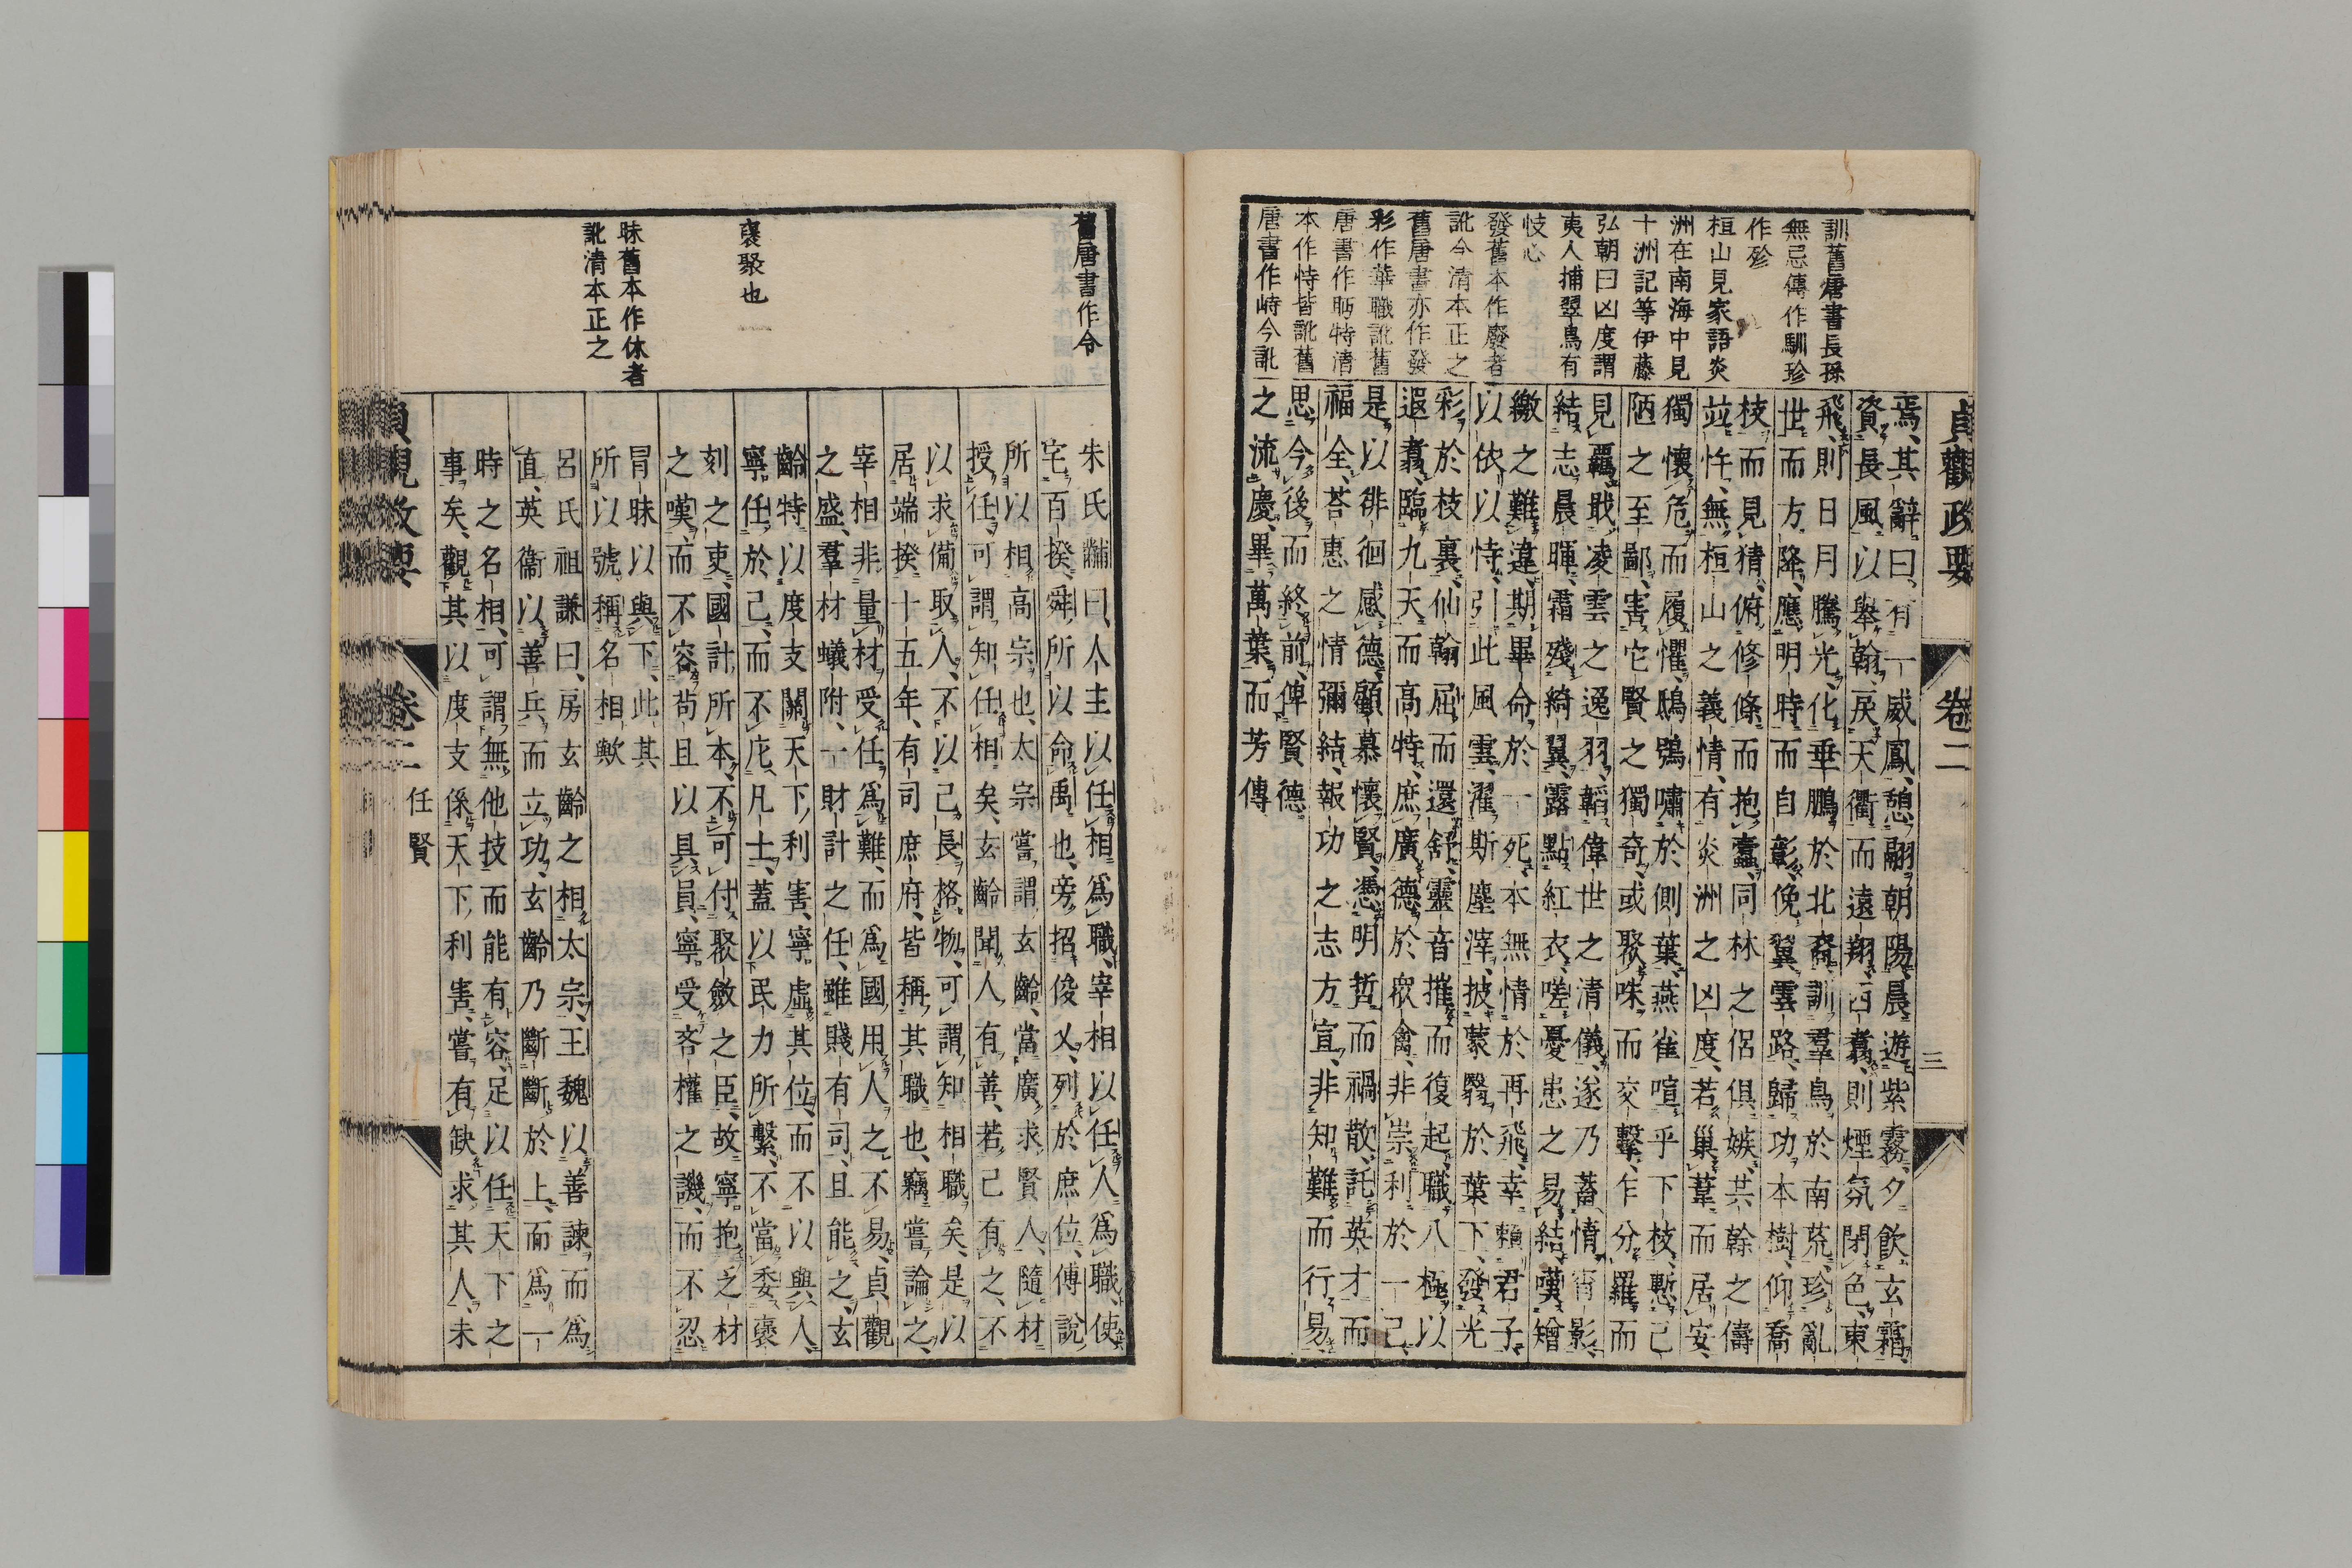 貞觀政要
卷二
三
訓舊唐書長孫
無忌傳作馴珍
作殄
桓山見家語炎
洲在南海中見
十洲記等伊藤
弘朝曰凶度謂
夷人捕翠鳥有
忮心
發舊本作廢者
訛今清本正之
舊唐書亦作發
彩作華職訛舊
唐書作眄特清
本作恃皆訛舊
唐書作峙今訛
焉、其辭曰、有一威鳳、憩翮朝陽、晨遊紫霧、夕飲玄霜、
資長風以擧翰、戾天衢而遠翔、西翥則煙氛閉色、東
飛則日月騰光、化垂鵬於北裔、訓羣鳥於南荒、殄亂
世而方降、應明時而自彰、俛翼雲路、歸功本樹、仰喬
枝而見猜、俯修條而抱蠹、同林之侶俱嫉、共幹之儔
竝忤、無桓山之義情、有炎洲之凶度、若巢葦而居安、
獨懷危而履懼、鴟鴞嘯於側葉、燕雀喧乎下枝、慙己
陋之至鄙、害它賢之獨奇、或聚咮而交擊、乍分羅而
見羈、戢凌雲之逸羽、韜偉世之清儀、遂乃蓄情宵影、
結志晨暉、霜殘綺翼、露點紅衣、嗟憂患之易結、嘆矰
繳之難違、期畢命於一死、本無情於再飛、幸賴君子、
以依以恃、引此風雲、濯斯塵滓、披蒙翳於葉下、發光
彩於枝裏、仙翰屈而還舒、靈音摧而復起、職八極以
遐翥、臨九天而高特、庶廣德於衆禽、非崇利於一己、
是以徘徊感德、顧慕懷賢、憑明哲而禍散、託英才而
福全、荅惠之情彌結、報功之志方宣、非知難而行易、
思今後而終前、俾賢德
之流慶、畢萬葉而芳傳
舊唐書作令
裒聚也
昧舊本作休者
訛清本正之
朱氏黼曰、人主以任相爲職、宰相以任人爲職、使
宅百揆、舜所以命禹也、旁招俊乂、列於庶位、傅說
所以相高宗也、太宗嘗謂玄齡、當廣求賢人、隨材
授任、可謂知任相矣、玄齡聞人有善、若己有之、不
以求備取人、不以己長格物、可謂知相職矣、是以
居端揆十五年、有司庶府、皆稱其職也、竊嘗論之、
宰相非量材受任爲難、而爲國用人之不易、貞觀
之盛、羣材蟻附、一財計之任、雖賤有司且能之、玄
齡特以度支關天下利害、寧虛其位、而不以與人、
寧任於己、而不庀凡士、蓋以民力所繫、不當委裒
刻之吏、國計所本、不可付聚斂之臣、故寧抱乏材
之嘆、而不容苟且以具員、寧受吝權之譏、而不忍
冒昧以與下、此其
所以號稱名相歟
呂氏祖謙曰、房玄齡之相太宗、王魏以善諫而爲
直、英衞以善兵、而立功、玄齡乃斷斷於上、而爲一
時之名相、可謂無他技而能有容、足以任天下之
事矣、觀其以度支係天下利害、嘗有缺求其人、未
貞觀政要
卷二
任賢